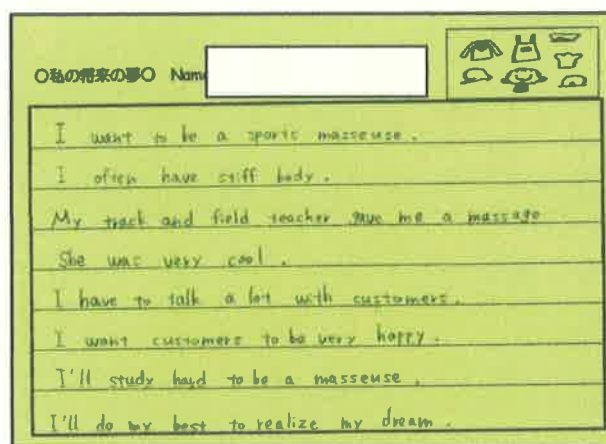 ○私の将来の夢○ Name
I want to be a sports masseuse.
I often have stiff body.
My track and field teacher gave me a massage
She was very cool.
I have to talk a lot with customers.
I want customers to be very happy.
I'll study hard to be a masseuse.
I'll do my best to realize my dream.